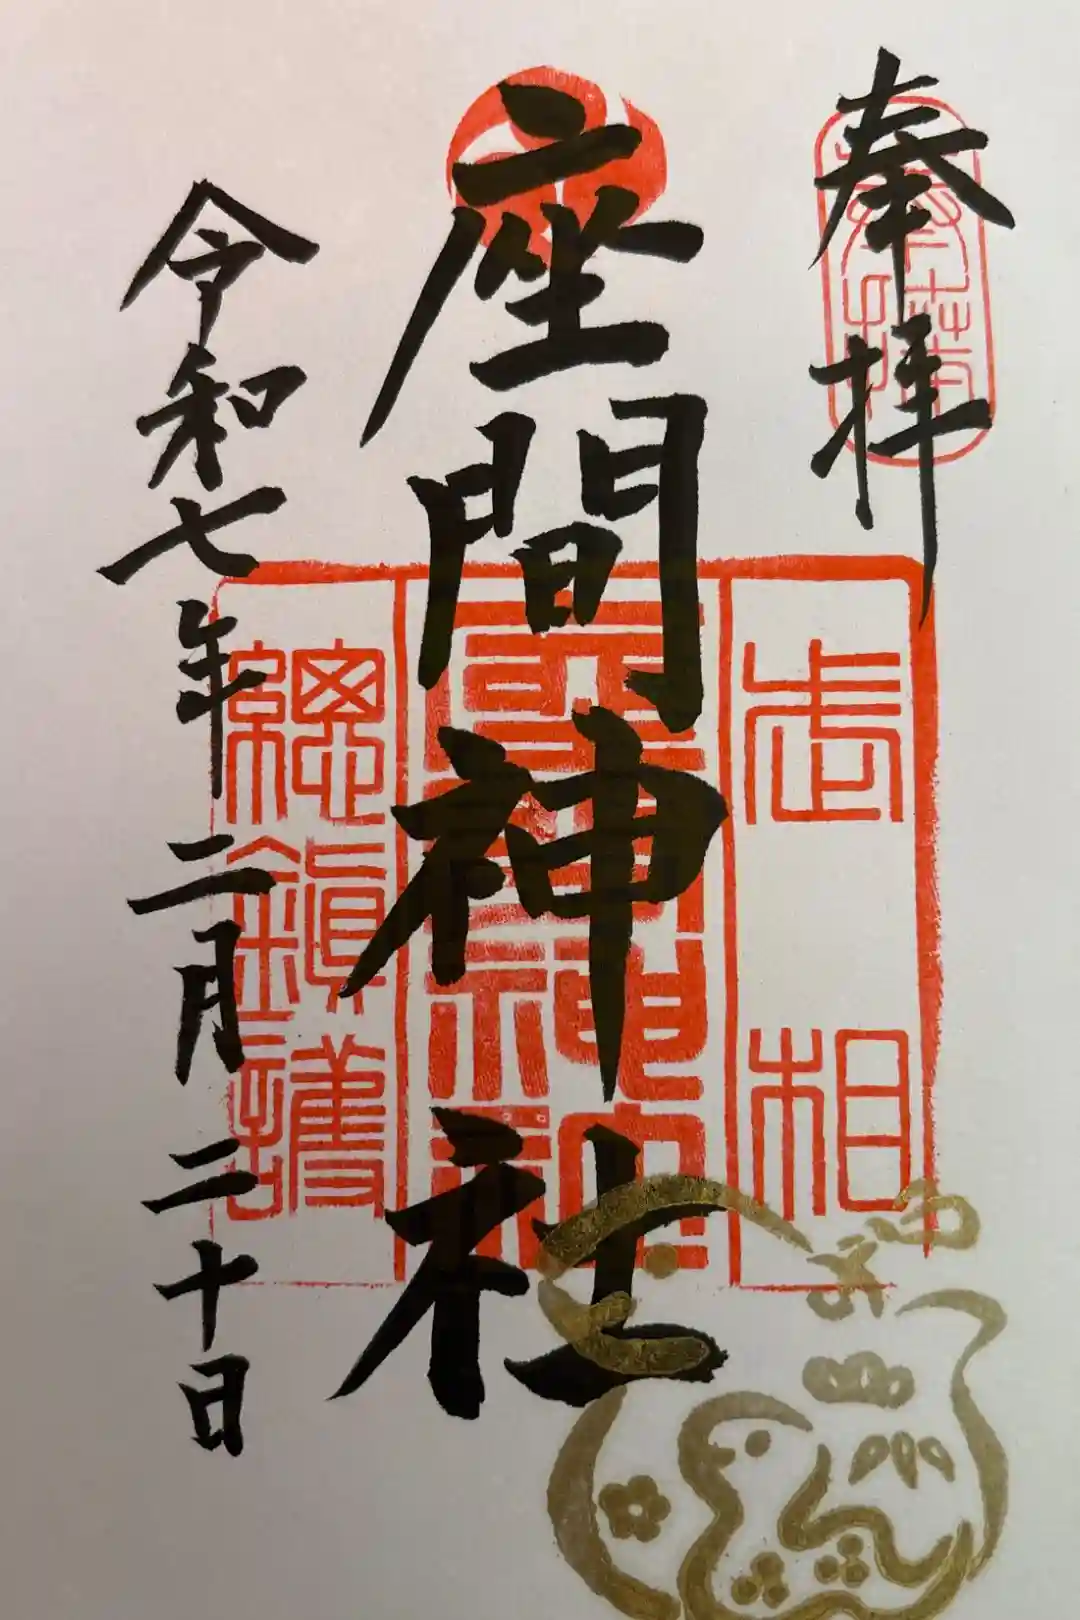 奉拝
奉拝
座間神社
相武
座間神社
總鎮護
令和七年二月二十日